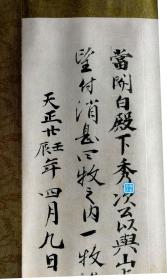 當関白殿下秀次公以與山
望付消息四枚之内一枚
天正廿壬辰年四月九日